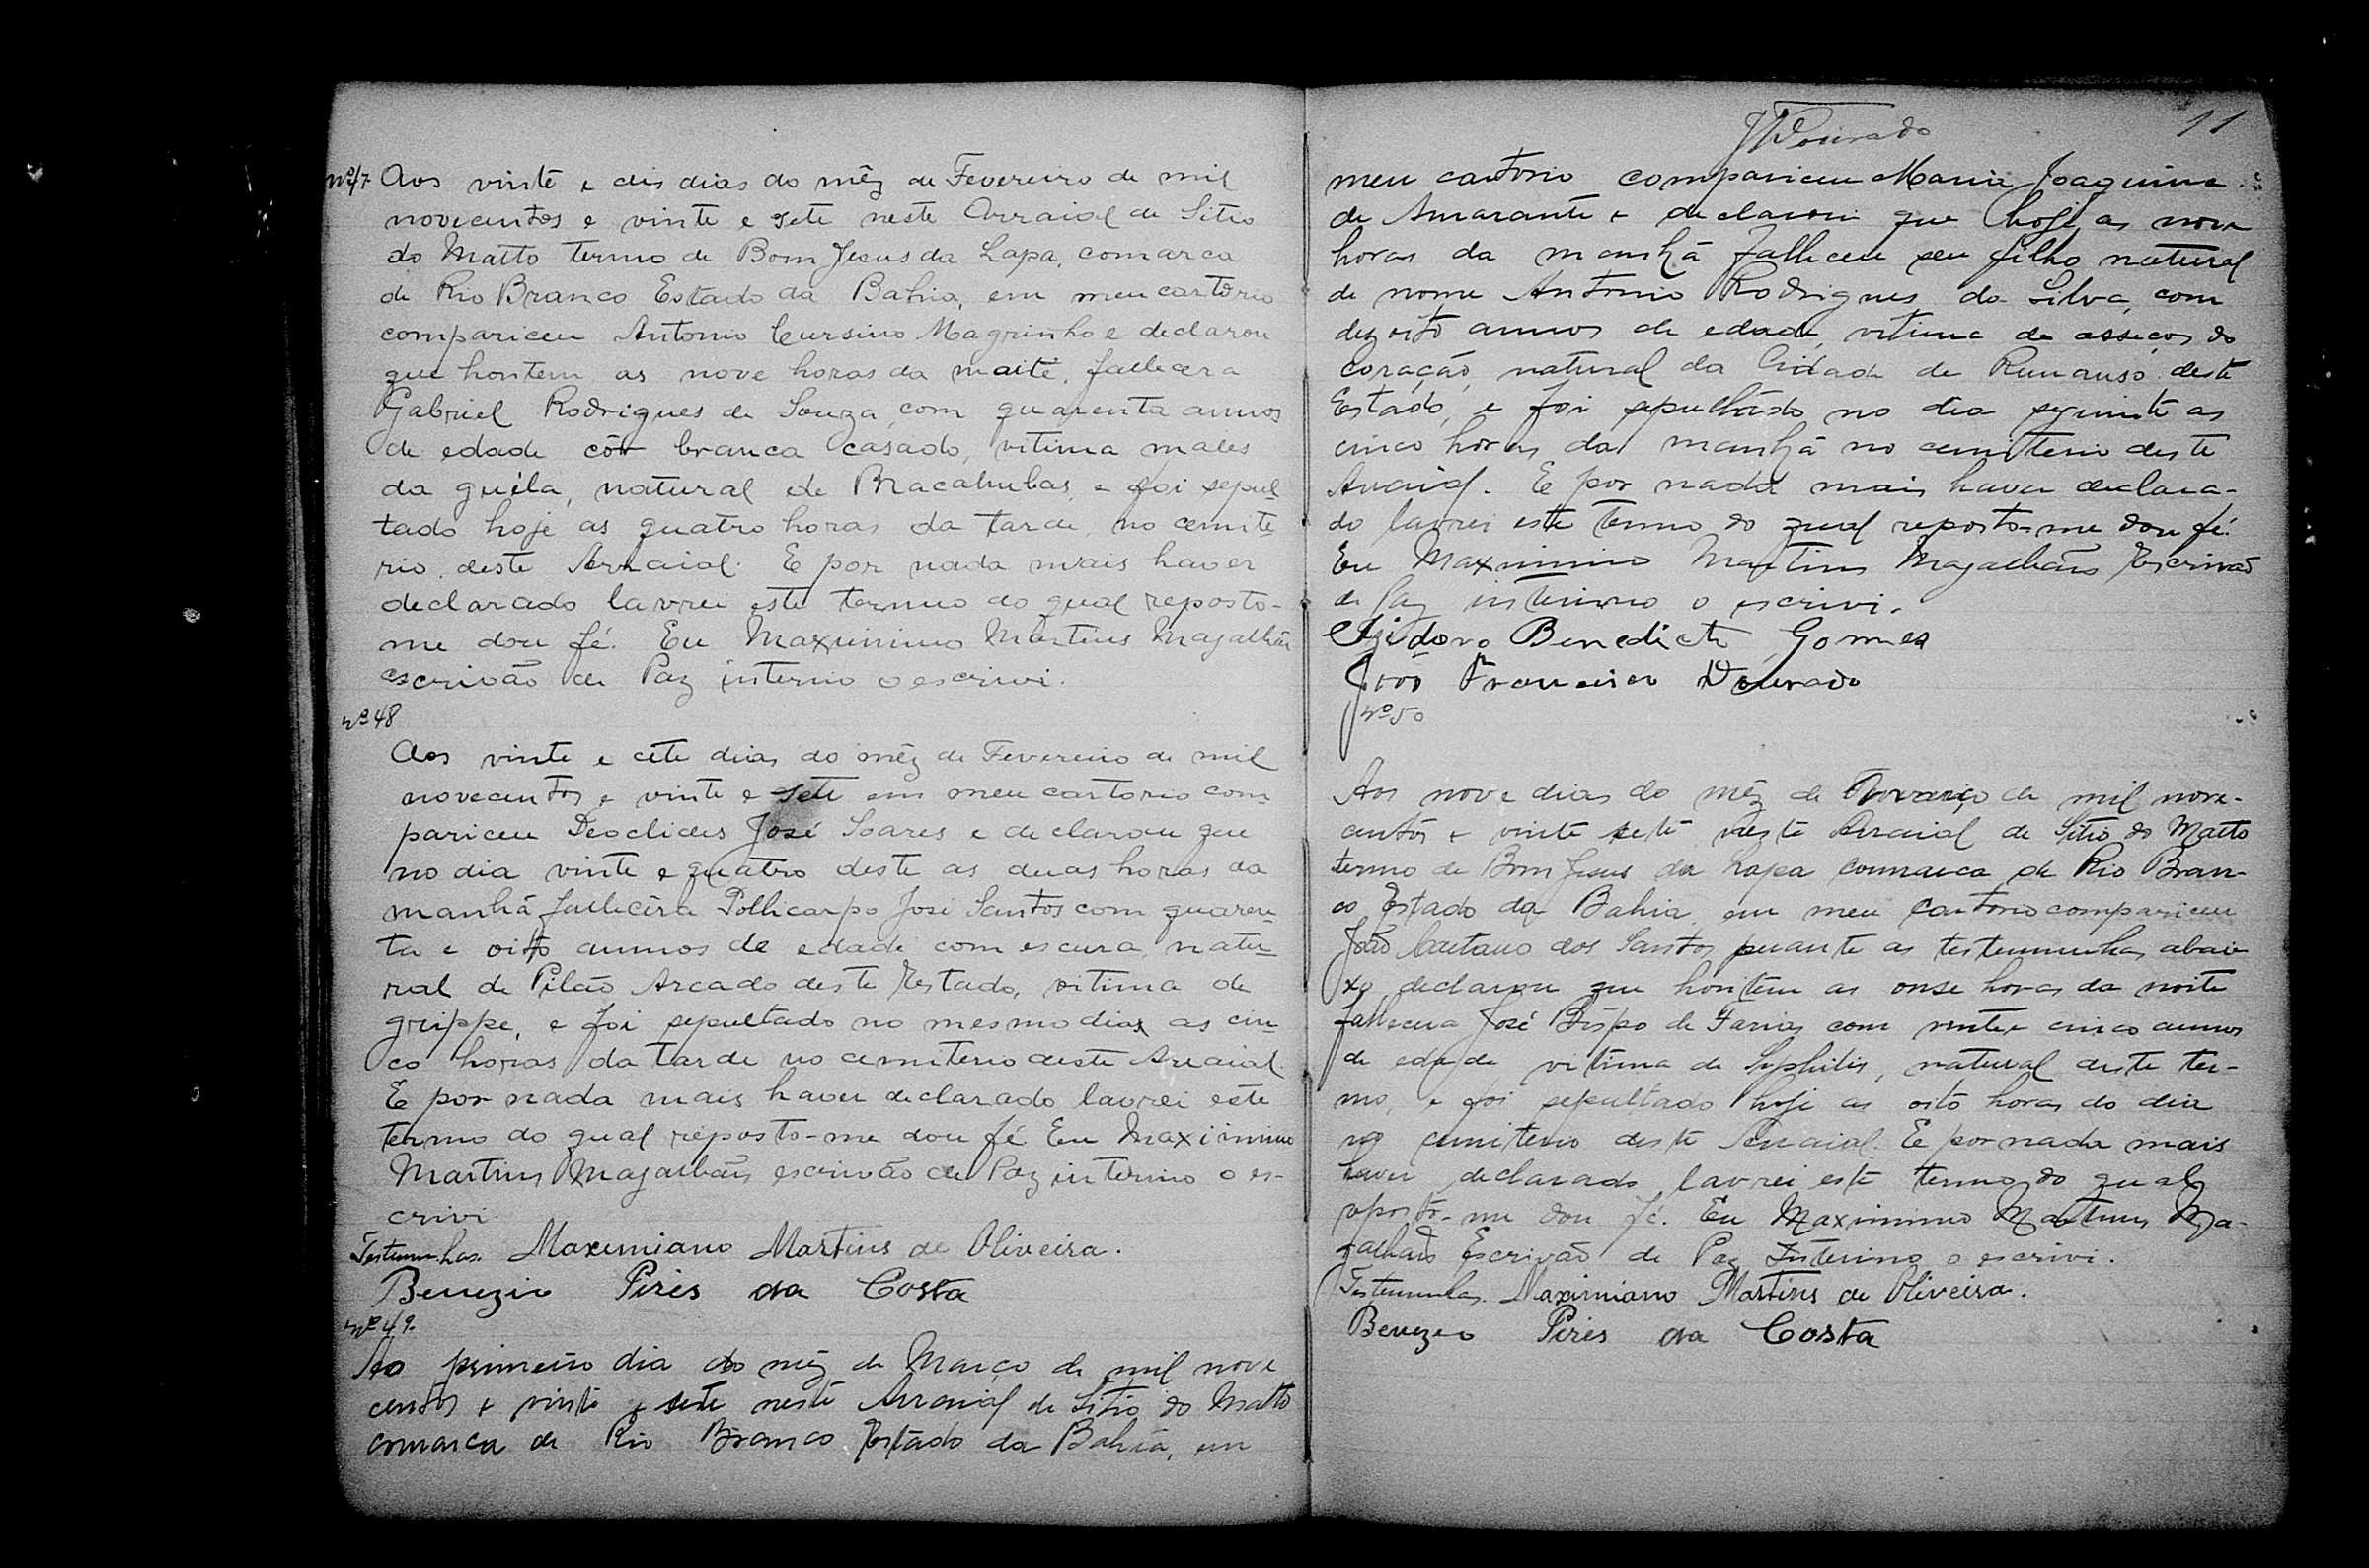 nº47 Aos vinte e dis dias do mêz de Fevereiro de mil
novecentos e vinte e sete neste Arraial de Sitio
do Matto termo de Bom Jesus da Lapa, comarca
de Rio Branco Estado da Bahia, em meu cartorio
compariceu Antonio Cursino Magrinho e declarou
que hontem as nove horas da noite, fallecera
Gabriel Rodrigues de Souza, com quarenta annos
de edade côr branca casado, vitima males
da guéla, natural de Macahubas, e foi sepul-
tado hoje as quatro horas da tarde, no cemite-
rio deste Arraial. E por nada mais haver
declarado lavrei este termo do qual reposto-
me dou fé. Eu Maximino Martins Magalhães
escrivão de Paz interno o escrivi.
nº 48
Aos vinte e cête dias do mêz de Fevereiro de mil
novecentos e vinte e sete em meu cartorio com-
pariceu Deoclides José Soares e declarou que
no dia vinte e quatro deste as duas horas da
manhã fallecêra Pollicarpo José Santos com quaren-
ta e oito annos de edade com escura, natu-
ral de Pilão Arcado deste Estado, vitima de
grippe, e foi sepultado no mesmo dia as cin-
co horas da tarde no cemiterio deste Arraial.
E por nada mais haver declarado lavrei este
termo do qual reposto-me dou fé Eu Maximino
Martins Magalhães escrivão de Paz interino o es-
crivi.
Testemunhas. Maximiano Martins de Oliveira.
Benezio Pires da Costa
nº 49.
Ao primeiro dia do mêz de Março de mil nove
centos e vinte e sete neste Arraial de Sitio do Matto
comarca de Rio Branco Estado da Bahia, em
JFDourado
11
meu cartorio compariceu Maria Joaquina
de Amarante e declarou que hoje as nove
horas da manhã falleceu seu filho natural
de nome Antonio Rodrigues da Silva, com
dezoito annos de edade, vitima de asseços do
coração, natural da Cidade de Remanso deste
Estado, e foi sepultado no dia seguinte as
cinco horas da manhã no cemiterio deste
Arraial. E por nada mais haver declara-
do lavrei este termo do qual reposto-me dou fé.
Eu Maximino Martins Magalhães Escrivão
de Paz interino o escrivi.
Isidoro Benedicto Gomes
João Francisco Dourado
nº 50
Aos nove dias do mêz de de mil nove-
centos e vinte sete neste Arraial de Sitio do Matto
termo de Bom Jesus da Lapa comarca de Rio Bran-
co Estado da Bahia, em meu cartorio compariceu
João Caetano dos Santos perante as testemunhas abai-
xo, declarou que hontem as onse horas da noite
fallecera José Bispo de Farias com vinte e cinco annos
de edade vitima de Syphilis, natural deste ter-
mo, e foi sepultado hoje as oito horas do dia
no cemiterio deste Arraial. E por nada mais
haver declarado lavrei este termo do qual
reposto-me dou fé. Eu Maximino Martins Ma-
galhães Escrivão de Paz Interino o escrivi.
Testemunhas. Maximiano Martins de Oliveira.
Benezio Pires da Costa